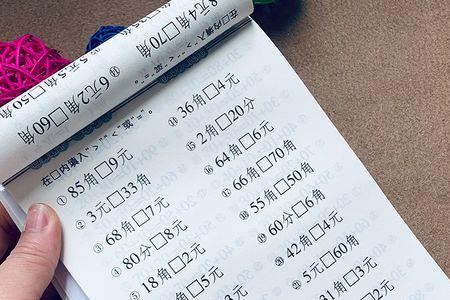 在□内填入“>”“<”或“=”。
元4角□70角
⑭ 6元2角□60角
在□内填入“>”“<”或“=”。
① 85角□9元
② 3元□33角
③ 68角□7元
④ 80分□8元
⑤ 18角□2元
角□5元
□3元
⑭ 36角□4元
⑮ 2角□20分
⑯ 64角□6元
⑰ 66角□70角
⑱ 55角□50角
⑲ 60分□6角
⑳ 42角□4元
㉑ 5元□60角
31角□3元